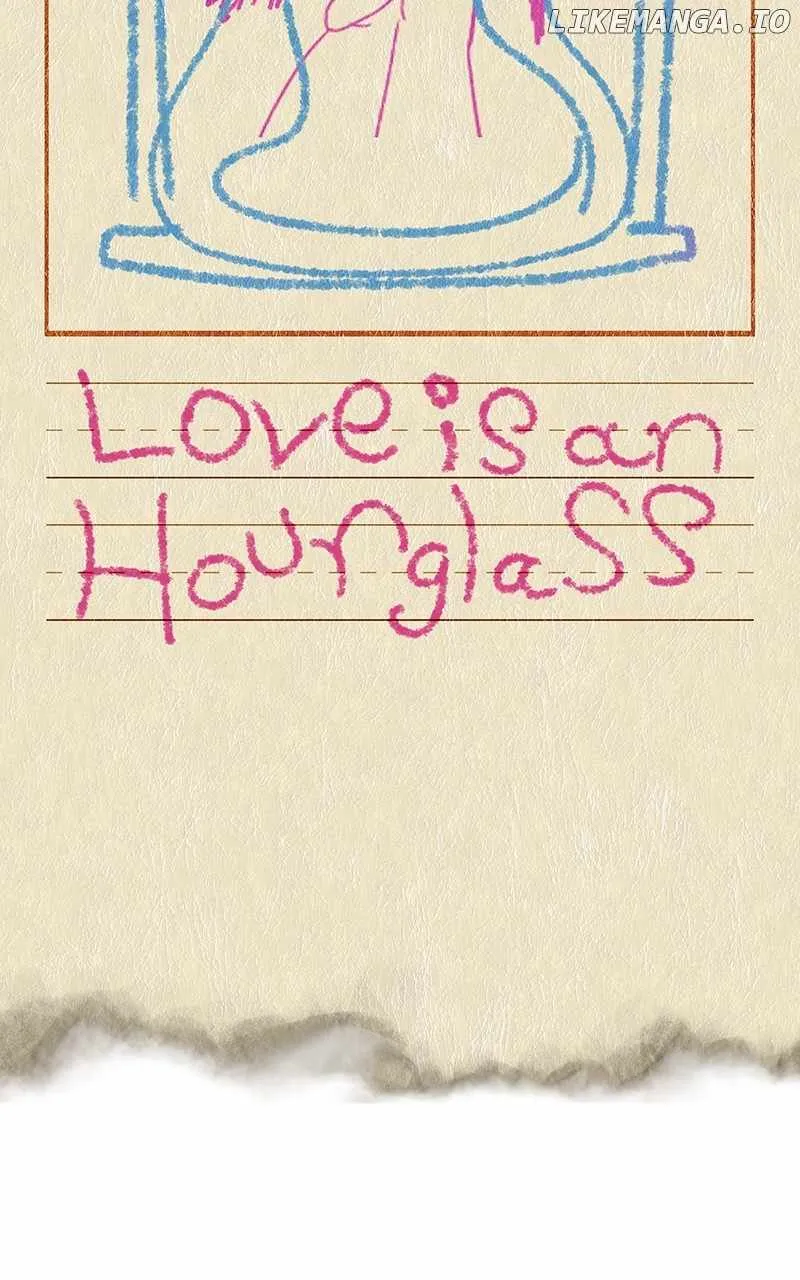 LIKEMANGA.IO
Love is an
HourglaSS